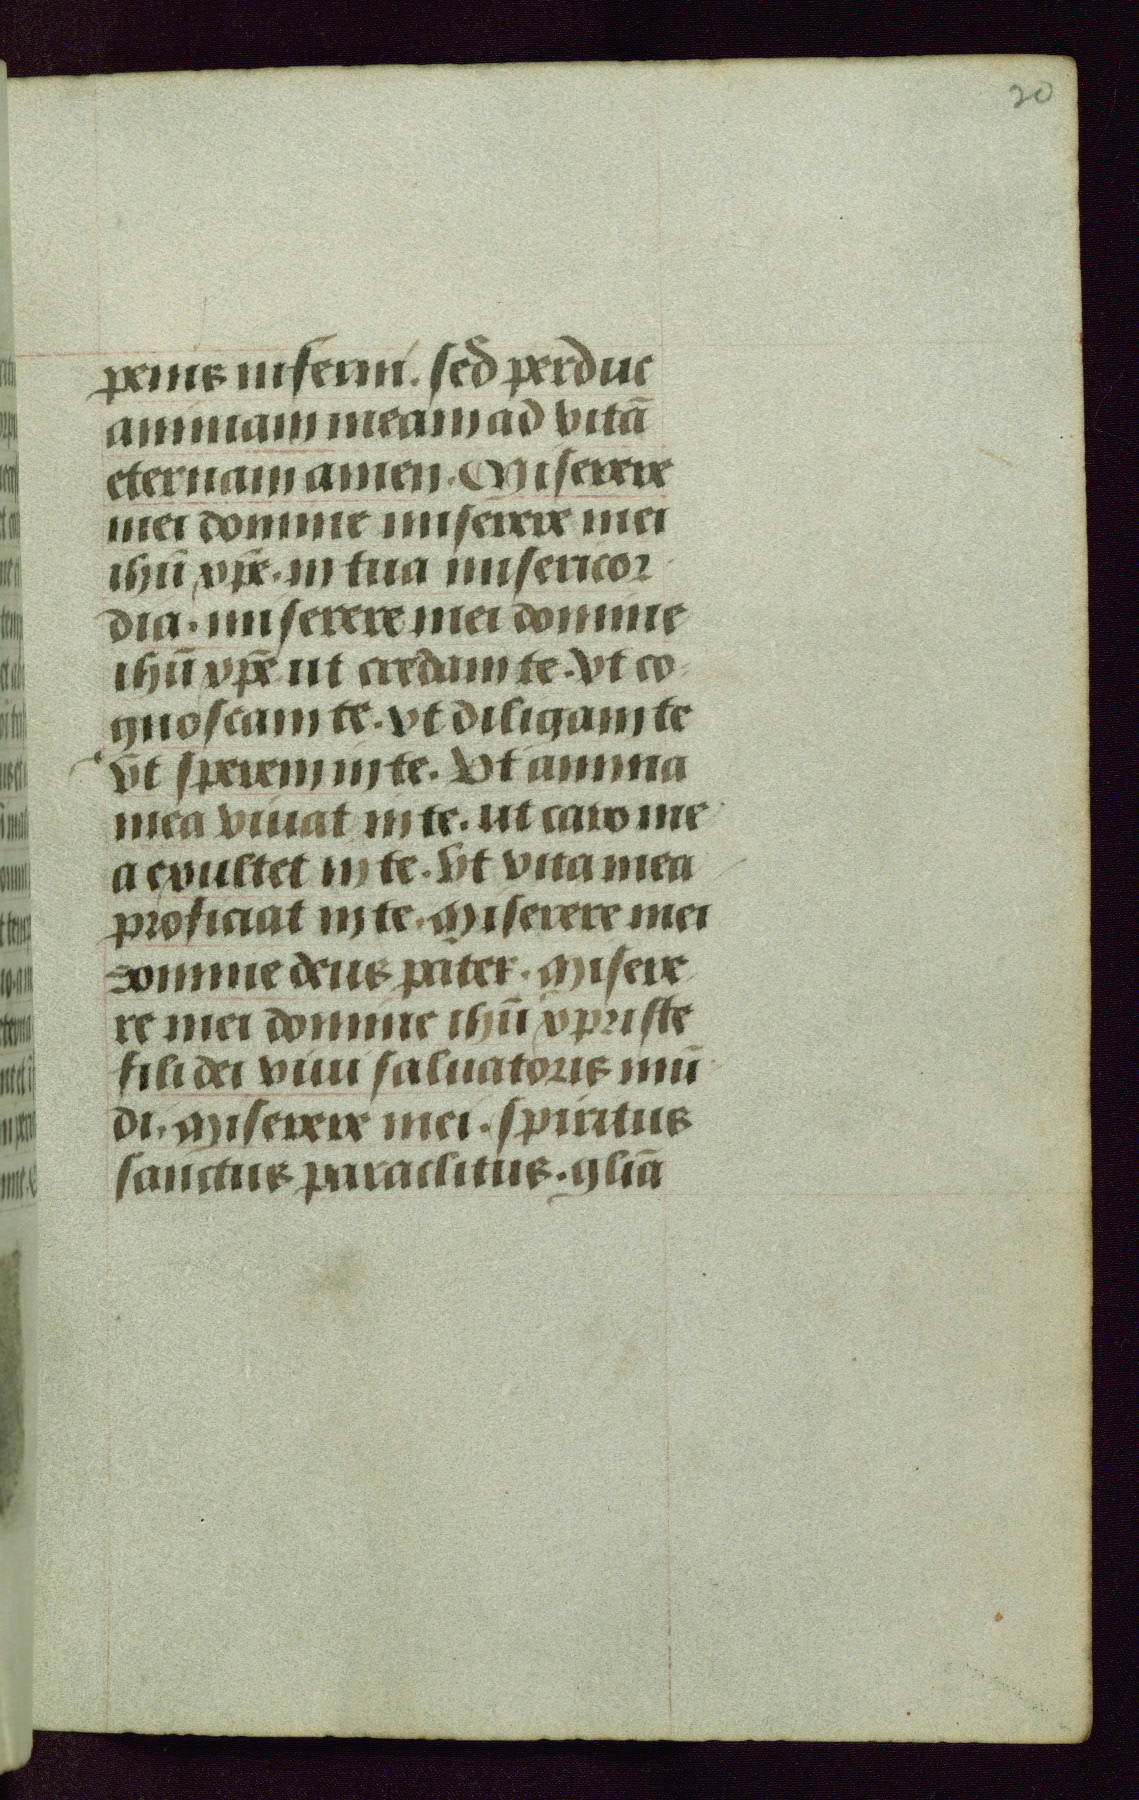 20
penis inferni. sed perduc
animam meam ad vitā
eternam amen. Miserere
mei domine miserere mei
ihū xpē. in tua misericor
dia. miserere mei domine
ihū xpē ut credam te. vt co
gnoscam te. vt diligam te
vt sperem in te. Vt anima
mea viuat in te. ut caro me
a exultet in te. Vt vita mea
proficiat in te. Miserere mei
domine deus pater. Misere
re mei domine ihū xpriste
fili dei viui saluatoris mū
di. Miserere mei. spiritus
sanctus paraclitus. gliā